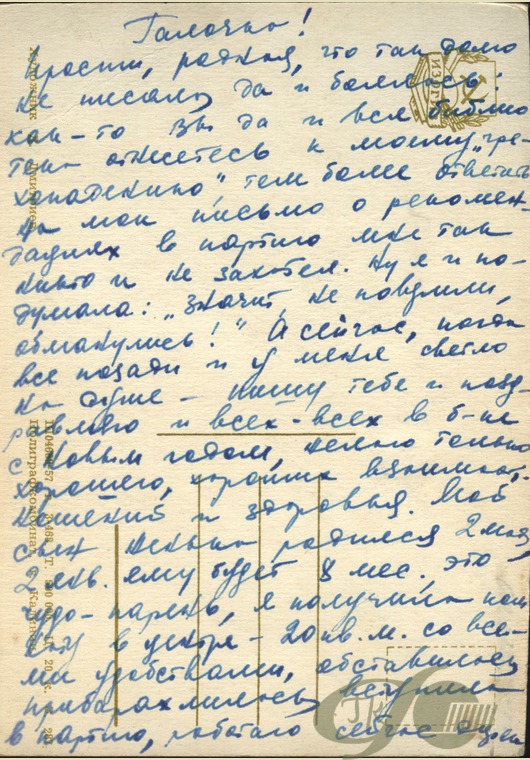 Галочка!
Прости, родная, что так долго
не писала, да и боялась:
как-то Вы да и вся библио
тека отнесетесь к моему „гре-
хопадению" тем более ответить
на мои письмо о рекомен-
дациях в партию мне так
никто и не захотел. Ну я и по-
думала: „Значит, не поверили,
обманулись!" А сейчас, когда
все позади и у меня светло
на душе – пишу тебе и позд-
равляю и всех-всех в б-ке
с Новым годом, желаю только
хорошего, хороших взаимоот-
ношений и здоровья. Мой
сын родился 2 мая
2 янв. ему будет 8 мес., это
чудо-парень, я получила ком
нату в центре – 20 кв. м. со все-
ми удобствами, обставилась
прибарахлилась, вступила
в партию, работаю сейчас
ИЗОГИЗ
Художник